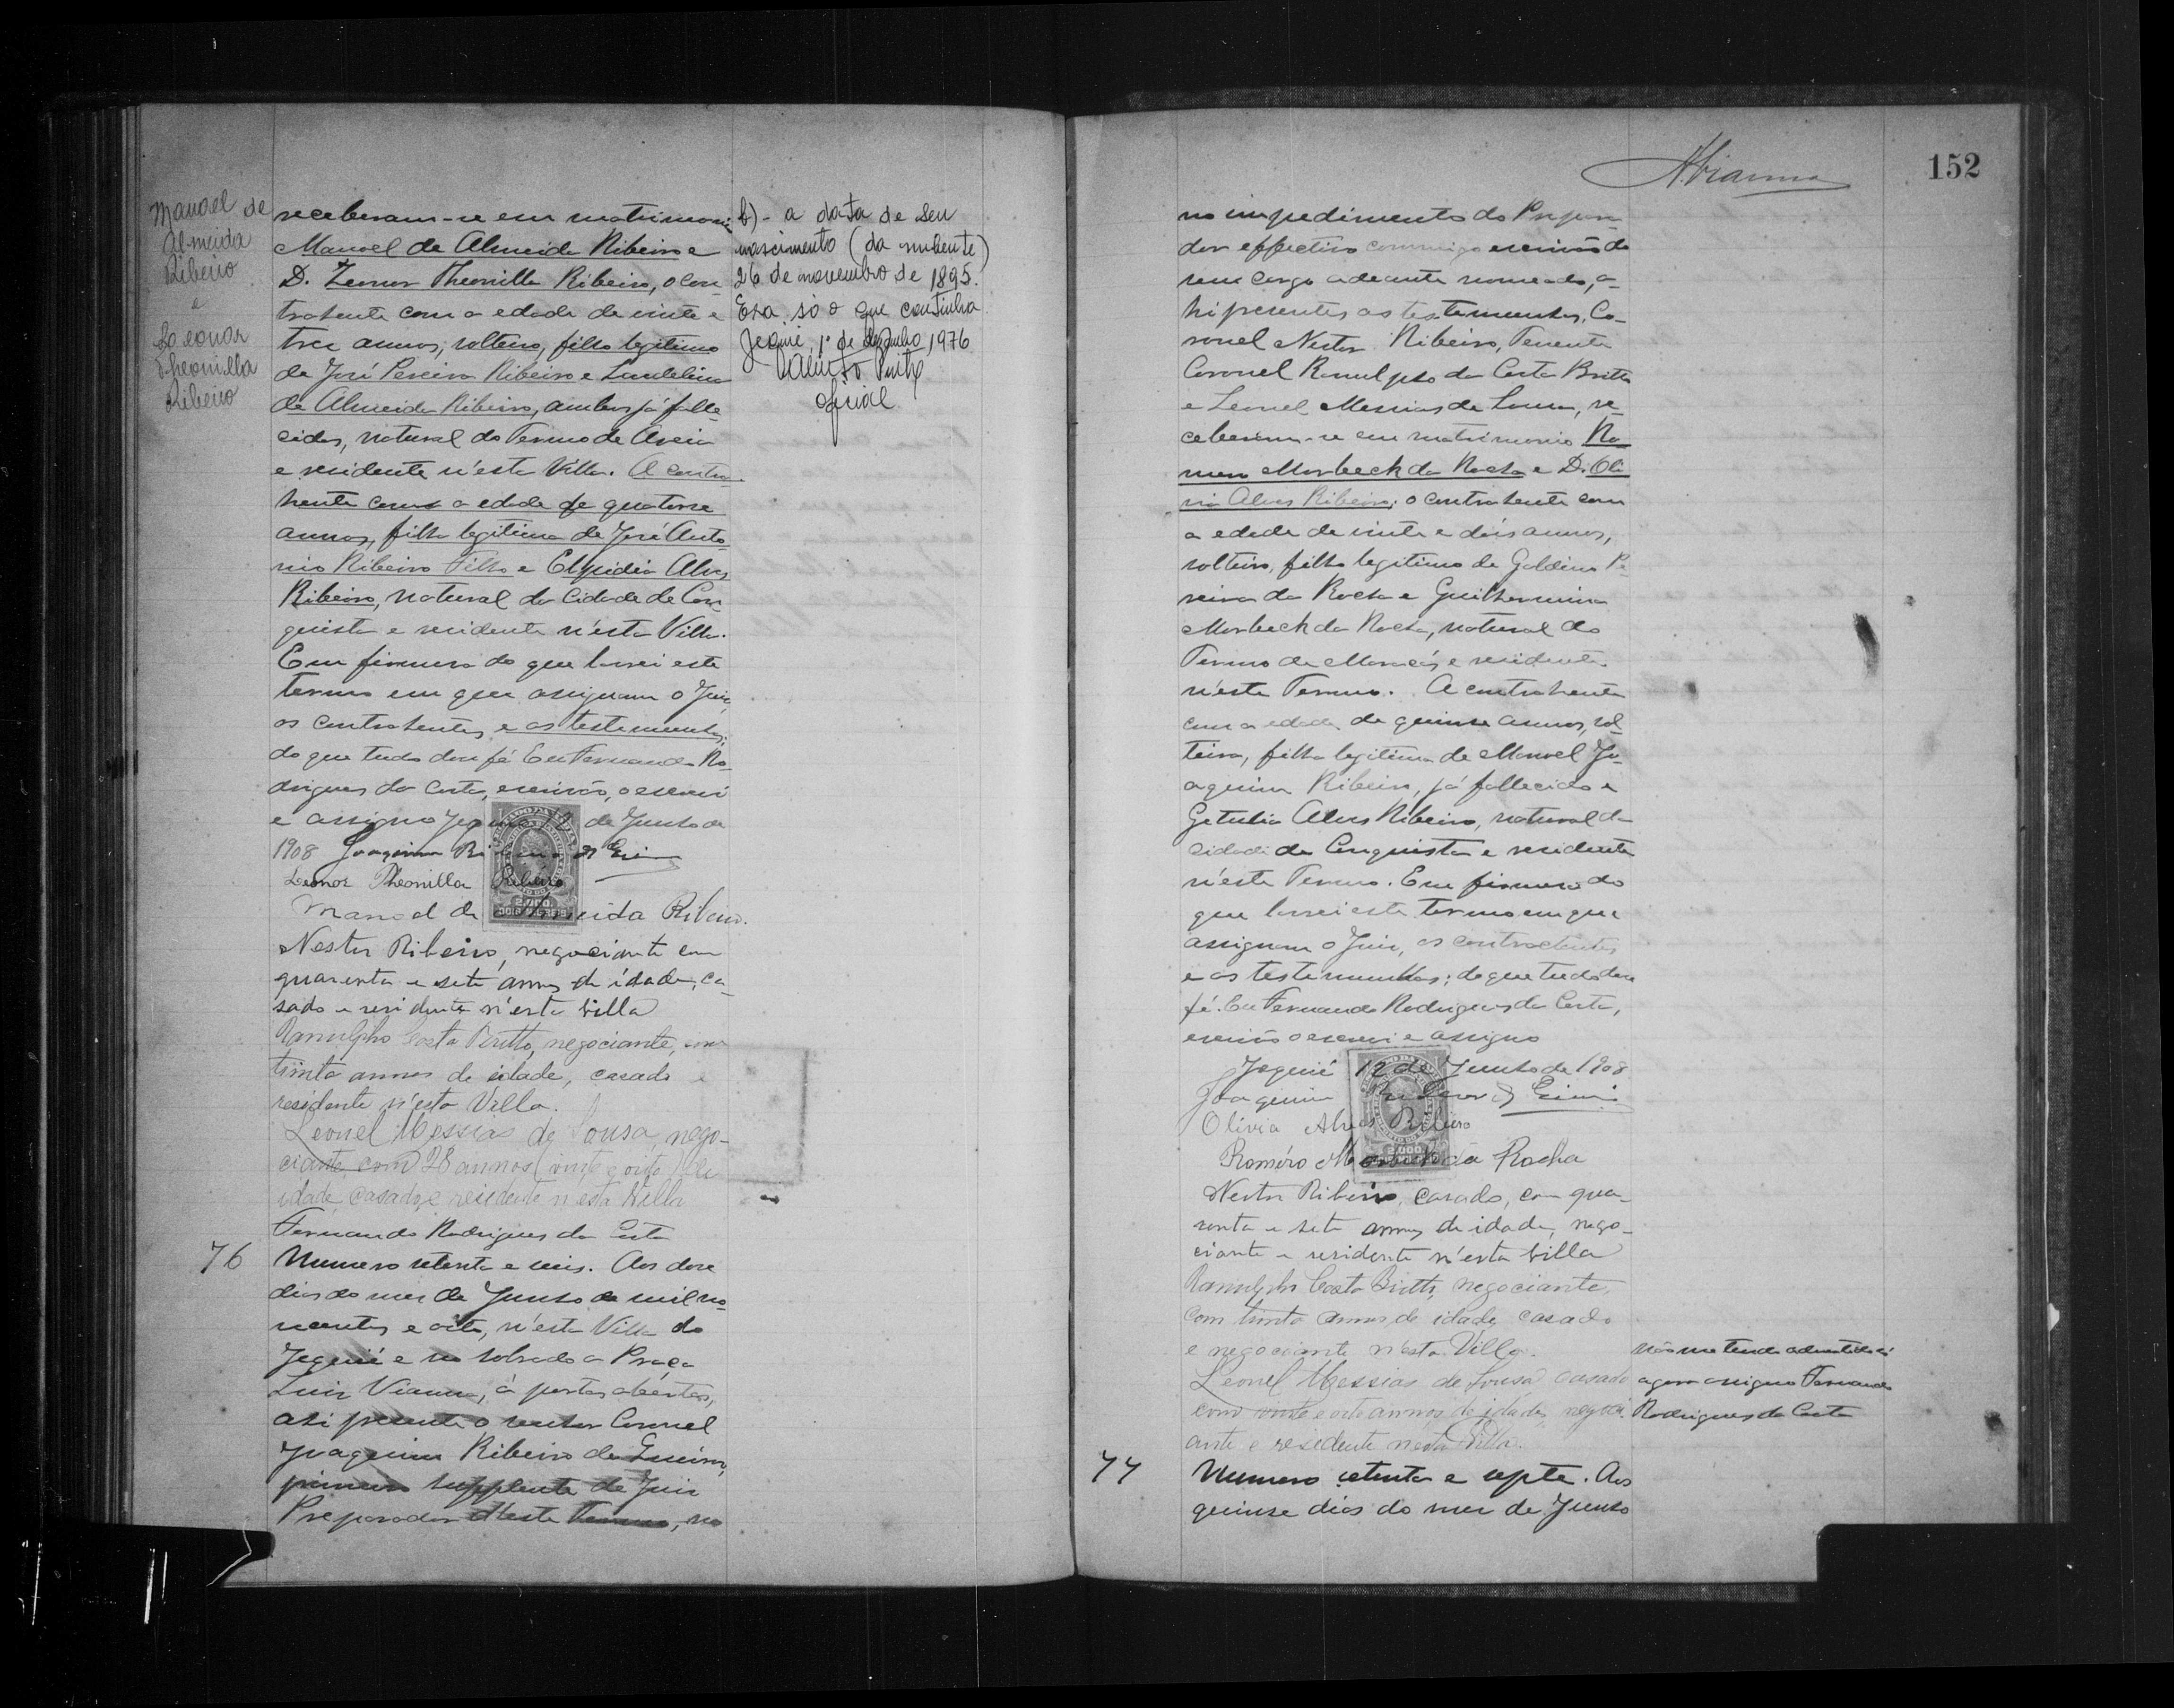 Manoel de
Almeida
Ribeiro
e
Leonor
Theonilla
Ribeiro
receberam-se em matrimonio
Manoel de Almeida Ribeiro e
D. Leonor Theonilla Ribeiro, o con-
trahente com a edade de vinte e
tres annos, solteiro, filho legitimo
de José Pereira Ribeiro e Laudelina
de Almeida Ribeiro, ambos já falle
cidos, natural do Termo de Areia
e residente n'esta Villa. A contra-
hente com a edade de quatorse
annos, filha legitima de José Anto-
nio Ribeiro Filho e Elypidia Alves
Ribeiro, natural da Cidade de Con-
quista e residente n'esta Villa.
Em firmesa do que lavrei este
termo em que assignam o Juiz,
os contrahentes, e as testemunhas;
do que tudo dou fé Eu Fernando Ro-
drigues da Costa, escrivão, o escrevi
e assigno Jequié 12 de Junho de
1908 Joaquim Ribeiro
Leonor Theonilla Ribeiro
Manoel de Almeida Ribeiro.
Nestor Ribeiro, negociante com
quarenta e sete annos de idade, ca-
sado e residente n'esta villa
Ranulpho Costa Britto, negociante, com
trinta annos de idade, casado e
residente n'esta Villa.
Leonel Messias de Sousa, nego-
ciante com 28 annos (vinte e oito) de
idade, casado, e residente nesta Villa
Fernando Rodrigues da Costa
b) - a data de seu
nascimento (da nubente)
26 de novembro de 1895.
Era só o que continha
Jequié, 1º de julho 1976
oficial
76
Numero setenta e seis. Aos dose
dias do mes de Junho de mil no-
vecentos e oito, n'esta Villa do
Jequié e no sobrado a Praça
Luiz Vianna, á portas abertas,
ahi presente o senhor Coronel
Joaquim Ribeiro de
primeiro supplente de Juiz
Preparador d'este Termo, no
152
no impedimento do Prepara-
dor effectivo commigo escrivão do
seu cargo adeante nomeado, a-
hi presentes as testemunhas, Co-
ronel Nestor Ribeiro, Tenente
Coronel Ranulpho da Costa Britto
e Leonel Messias de Sousa, re-
ceberam-se em matrimonio Ro-
mero Morbeck da Rocha e D. Oli
via Alves Ribeiro; o contrahente com
a edade de vinte e dois annos,
solteiro, filho legitimo de Galdino Pe-
reira da Rocha e Guilhermina
Morbeck da Rocha, natural do
Termo de Maracás e residente
n'este Termo. A contrahente
com a edade de quinse annos, sol-
teira, filha legitima de Manoel Jo-
aquim Ribeiro, já fallecido e
Getulia Alves Ribeiro, natural da
cidade da Conquista e residente
n'este Termo. Em firmesa do
que lavrei este termo em que
assignam o Juiz, os contractantes
e as testemunhas; do que tudo dou
fé. Eu Fernando Rodrigues da Costa,
escrivão o escrevi e assigno
Jequié 12 de Junho de 1908
Joaquim Ribeiro
Olivia Alves Ribeiro
Roméro Morbeck da Rocha
Nestor Ribeiro, casado, com qua-
renta e sete annos de idade, nego-
ciante e residente n'esta villa
Ranulpho Costa Britto, negociante,
com trinta annos de idade, casado
e negociante n'esta Villa.
Leonel Messias de Sousa casado
com vinte e oito annos de idade, negoci-
ante e residente nesta Villa.
agora assigno Fernando
Rodrigues da Costa
77
Numero setenta e septe. Aos
quinse dias do mes de Junho